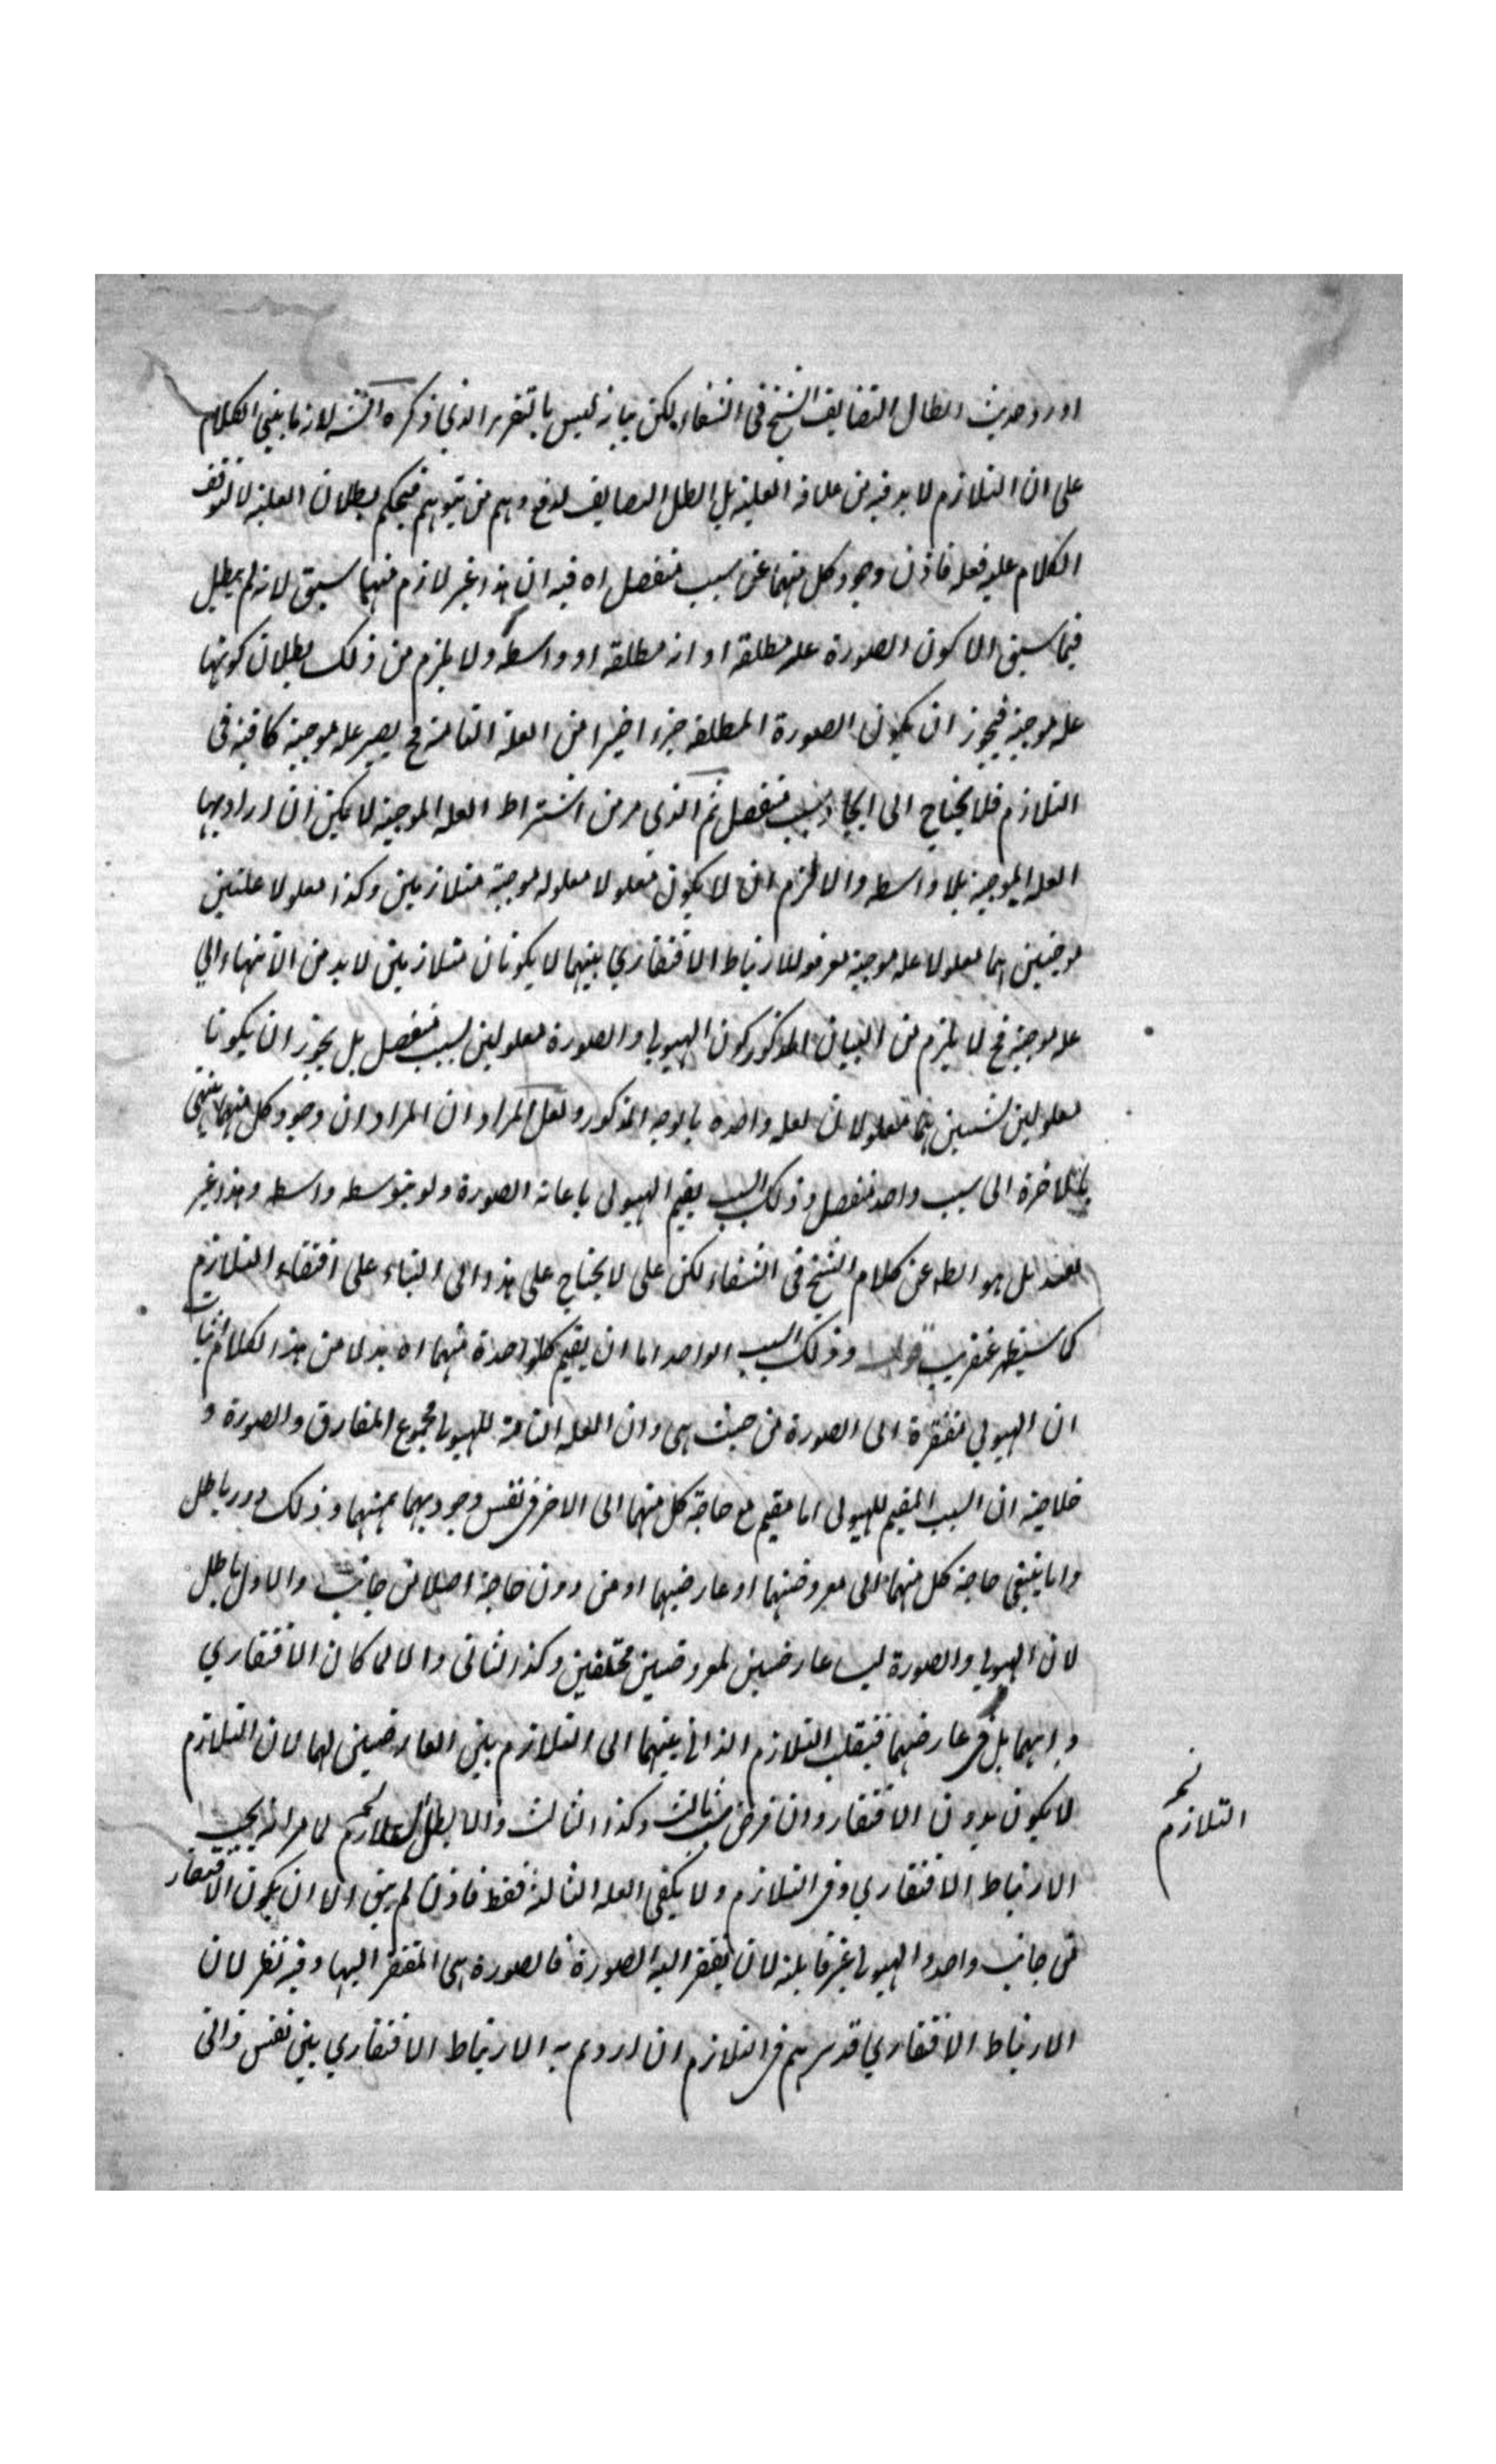 اورد حديث ابطال التضايف الشيخ في الشفاء لكن بيانه ليس بالتقرير الذي ذكره الشه لانه ما بني الكلام
على ان التلازم لا بد فيه من علاقة العلية بل ابطل التضايف لدفع وهم من يتوهم فيحكم ببطلان العلية لا لتوقف
الكلام عليه فعله فاذن وجود كل منهما عن سبب منفصل اه فيه ان هذا غير لازم مما سبق لانه لم يبطل
فيما سبق الا كون الصورة علة مطلقة او آلة مطلقة او واسطة ولا يلزم من ذلك بطلان كونها
علة موجبة فيجوز ان يكون الصورة المطلقة جزء اخيرا من العلة التامة فح يصير علة موجبة كافية في
التلازم فلا يحتاج الى ايجاد سبب منفصل ثم الذي مر من اشتراط العلة الموجبة لا يمكن ان اراد بها
العلة الموجبة بلا واسطة والا لزم ان لا يكون معلولا معلولة موجبة متلازمين وكذا معلولا علتين
موجبتين هما معلولا علة موجبة موقعة للارتباط الافتقاري بينهما لا يكونان متلازمين لا بد من الانتهاء الى
علة موجبة فح لا يلزم من البيان المذكور كون الهيولى والصورة معلولين لسبب منفصل بل يجوز ان يكونا
معلولين لشيئين هما معلولان لعلة واحدة بالوجه المذكور ولعل المراد ان المراد ان وجود كل منهما ينتهي
بالاخرة الى سبب واحد منفصل وذلك السبب يقيم الهيولى باعانة الصورة ولو بتوسط واسطة وهذا غير
بعيد بل هو الظ من كلام الشيخ في الشفاء لكن على لا يحتاج على هذا الى البناء على اقتضاء التلازم
كما سيظهر عنقريب قوله وذلك السبب الواحد اما ان يقيم كل واحدة منهما اه بدل من هذا الكلام اثبات
ان الهيولى مفتقرة الى الصورة من حيث هي وان العلة التامة للهيولى مجموع المفارق والصورة و
خلاصته ان السبب المقيم للهيولى اما مقيم مع حاجة كل منهما الى الاخر في نفس وجوديهما منهما وذلك دور باطل
واما ينبغي حاجة كل منهما الى معروضيهما او عارضيهما او من دون حاجة اصلا من جانب والاول باطل
لان الهيولى والصورة ليسا عارضين لمعروضين مختلفين وكذا الثاني والا لما كان الافتقاري
ذاتيهما بل في عارضيهما فينقلب التلازم الذاتي بينهما الى التلازم بين العارضين لهما لان التلازم
لا يكون بدون الافتقار وان فرض سبب ثالث وكذا الثالث والا بطل التلازم لما مر انه يجب
الارتباط الافتقاري في التلازم ولا يكفي العلة الثالثة فقط فاذن لم يبق الا ان يكون الافتقار
من جانب واحد والهيولى غير قابلة لان يفتقر اليه الصورة فالصورة هي المفتقر اليها وفيه نظر لان
الارتباط الافتقاري قد سلم في التلازم ان اردتم به الارتباط الافتقاري بين نفس ذاتي
التلازم